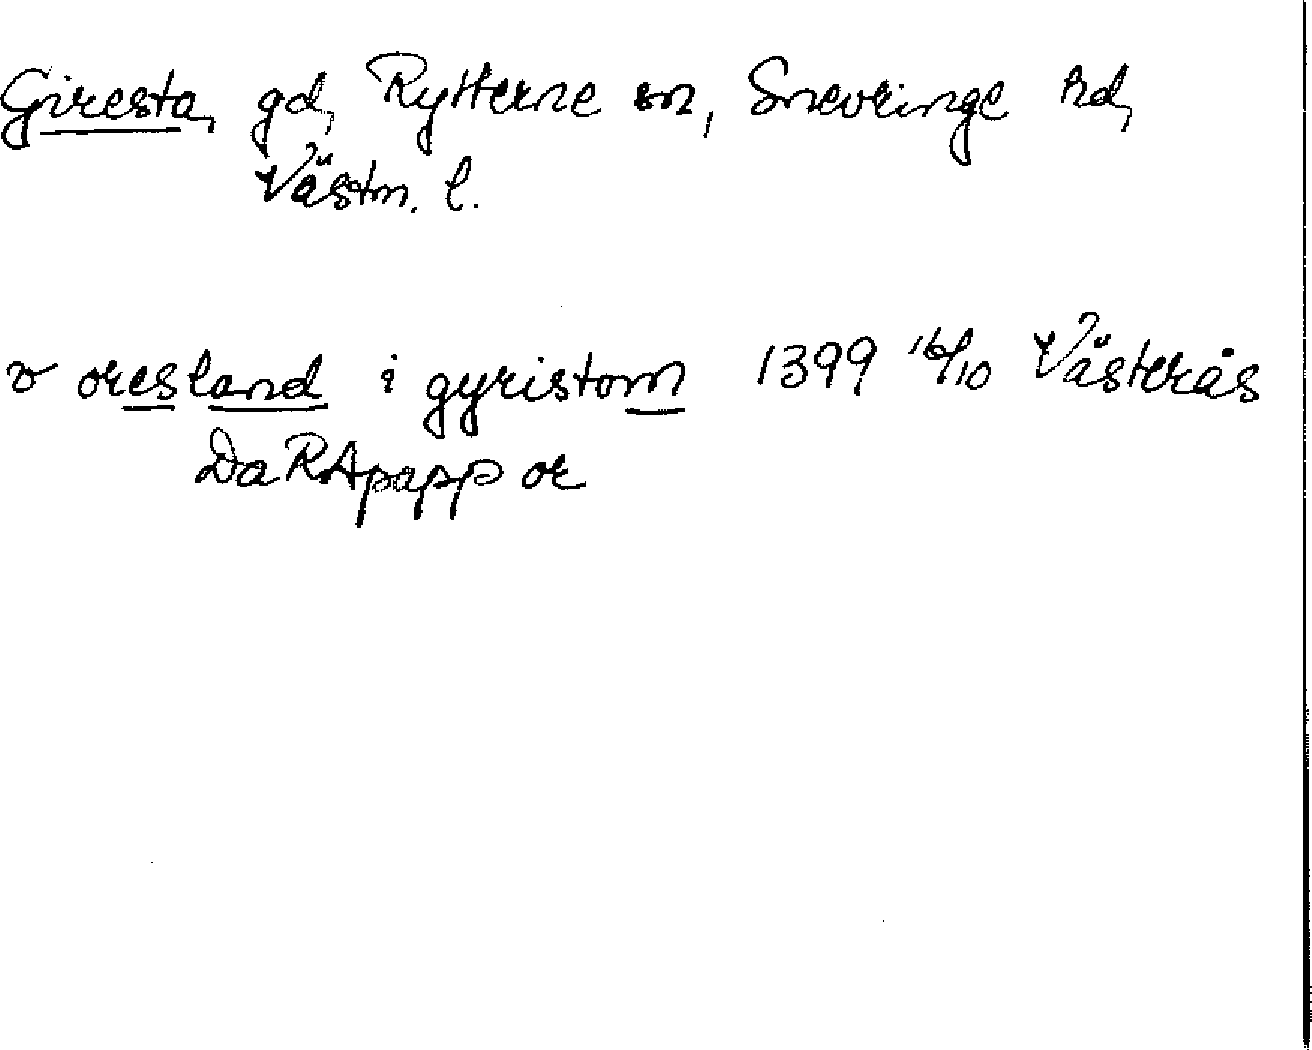 Giresta, gd, Rytterne sn, Snevringe hd,
Västm. l.
v oresland i gyristom 1399 16/10 Västerås
DaRApapp or